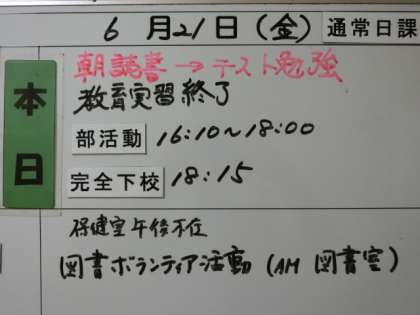 6月21日(金) 通常日課
本日
朝読書→テスト勉強
教育実習終了
部活動 16:10~18:00
完全下校 18:15
保健室午後不在
図書ボランティア活動 (AM 図書室)